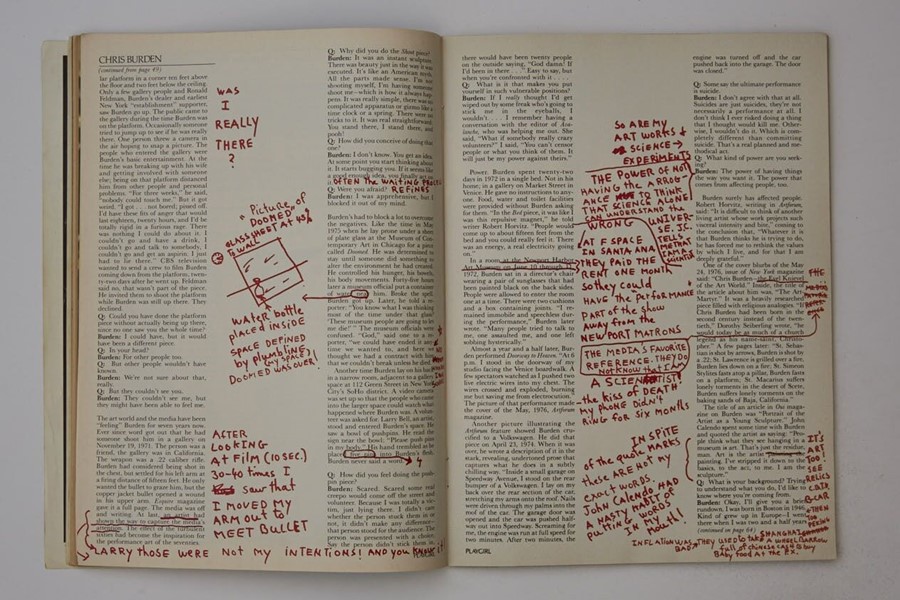 CHRIS BURDEN
(continued from page 49)
lar platform in a corner ten feet above
the floor and two feet below the ceiling.
Only a few gallery people and Ronald
Feldman, Burden's dealer and earliest
New York "establishment" supporter,
saw Burden go up. The public came to
the gallery during the time Burden was
on the platform. Occasionally someone
tried to jump up to see if he was really
there. One person threw a camera
in the air hoping to snap a picture. The
people who entered the gallery were
Burden's basic entertainment. At the
time he was breaking up with his wife
and getting involved with someone
else; being on that platform distanced
him from other people and personal
problems. "For three weeks," he said,
"nobody could touch me." But it got
weird. "I got . . . not bored; pissed off.
I'd have these fits of anger that would
last eighteen, twenty hours, and I'd be
totally rigid in a furious rage. There
was nothing I could do about it. I
couldn't go and have a drink, I
couldn't go and talk to somebody, I
couldn't go and get an aspirin. I just
had to lie there." CBS television
wanted to send a crew to film Burden
coming down from the platform, twenty-
two days after he went up. Feldman
said no, that wasn't part of the piece.
He invited them to shoot the platform
while Burden was still up there. They
declined.
Q: Could you have done the platform
piece without actually being up there,
since no one saw you the whole time?
Burden: I could have, but it would
have been a different piece.
Q: In your head?
Burden: For other people too.
Q: But other people wouldn't have
known.
Burden: We're not sure about that,
really.
Q: But they couldn't see you.
Burden: They couldn't see me, but
they might have been able to feel me.
The art world and the media have been
"feeling" Burden for seven years now.
Ever since word got out that he had
someone shoot him in a gallery on
November 19, 1971. The person was a
friend, the gallery was in California.
The weapon was a .22 caliber rifle.
Burden had considered being shot in
the chest, but settled for his left arm at
a firing distance of fifteen feet. He only
wanted the bullet to graze him, but the
copper jacket bullet opened a wound
in his upper arm. Esquire magazine
gave it a full page. The media was off
and writing. At last, an artist had
shown the way to capture the media's
attention. The effect of the turbulent
sixties had become the inspiration for
the performance art of the seventies.
WAS
I
REALLY
THERE
?
"Picture of
"DOOMED"
GLASS SHEET AT 45%
& WALL
WATER bottle
placed inside
SPACE DEFINED
by plumbline.
(by Janet)
DOOMED WAS OVER!
AFTER
LOOKING
AT FILM (10 SEC.)
30-40 times I
saw that
I MOVED MY
ARM OUT TO
MEET BULLET
LARRY THOSE WERE NOT MY INTENTIONS! AND YOU KNOW IT
Q: Why did you do the Shoot piece?
Burden: It was an instant sculpture.
There was beauty just in the way it was
executed. It's like an American myth.
All the parts made sense. I'm not
shooting myself, I'm having someone
shoot me—which is how it always happens.
It was really simple, there was no
complicated apparatus or gizmo like a
time clock or a spring. There were no
tricks to it. It was real straightforward.
You stand there, I stand there, and
pooh!
Q: How did you conceive of doing that
one?
Burden: I don't know. You get an idea.
At some point you start thinking about
it. It starts bugging you. If it seems like
a good enough idea, you finally act on
OFTEN THE WAITING PROCESS
REFINES
Q: Were you afraid?
Burden: I was apprehensive, but I
blocked it out of my mind.
Burden's had to block a lot to overcome
the negatives. Like the time in May
1975 when he lay prone under a sheet
of plate glass at the Museum of Contemporary
Art in Chicago for a piece
called Doomed. He was determined to
stay until someone did something to
alter the environment he had created.
He controlled his hunger, his bowels,
his body movements. Forty-five hours
later a museum official put a container
Burden got up. Later, he told a reporter,
"Do you know what I was thinking
most of the time under that glass?
'These museum people are going to let
me die!' " The museum officials were
confused. "God," said one to a reporter,
"we could have ended it any
time we wanted to, and here we
thought we had a contract with him
that we couldn't break unless he died."
Another time Burden lay on his back
in a narrow room, adjacent to a gallery
space at 112 Green Street in New York
City's SoHo district. A video camera
was set up so that the people who came
into the larger space could watch what
happened where Burden was. A volunteer
was asked for. Larry Bell, an artist,
stood and entered Burden's space. He
saw a bowl of pushpins. He read the
sign near the bowl: "Please push pins
in my body." His hand trembled as he
placed five pins into Burden's flesh.
Burden never said a word.
4
Q: How did you feel doing the pushpin
piece?
Burden: Scared. Scared some real
creeps would come off the street and
volunteer. Because I was totally a victim,
just lying there. I didn't care
whether the person stuck them in me or
not, it didn't make any difference—
that person stood for the audience. The
person was presented with a choice.
Say the person didn't stick them in,
there would have been twenty people
on the outside saying, "God damn! If
I'd been in there . . ." Easy to say, but
when you're confronted with it . . .
Q: What is it that makes you put
yourself in such vulnerable positions?
Burden: If I really thought I'd get
wiped out by some freak who's going to
stick me in the eyeballs, I
wouldn't. . . . I remember having a
conversation with the editor of Avalanche,
who was helping me out. She
said, "What if somebody really crazy
volunteers?" I said, "You can't censor
people or what you think of them. It
will just be my power against theirs."
Power. Burden spent twenty-two
days in 1972 in a single bed. Not in his
home; in a gallery on Market Street in
Venice. He gave no instructions to anyone.
Food, water and toilet facilities
were provided without Burden asking
for them. "In the Bed piece, it was like I
was this repulsive magnet," he told
writer Robert Horvitz. "People would
come up to about fifteen feet from the
bed and you could really feel it. There
was an energy, a real electricity going
on."
In a room at the Newport Harbor
Art Museum on June 10 through 21,
1972, Burden sat in a director's chair
wearing a pair of sunglasses that had
been painted black on the back sides.
People were allowed to enter the room
one at a time. There were two cushions
and a box containing marijuana. "I
remained immobile and speechless during
the performance," Burden later
wrote. "Many people tried to talk to
me, one assaulted me, and one left
sobbing hysterically."
Almost a year and a half later, Burden
performed Doorway to Heaven. "At 6
p.m. I stood in the doorway of my
studio facing the Venice boardwalk. A
few spectators watched as I pushed two
live electric wires into my chest. The
wires crossed and exploded, burning
me but saving me from electrocution."
The picture of that performance made
the cover of the May, 1976, Artforum
magazine.
Another picture illustrating the
Artforum feature showed Burden crucified
to a Volkswagen. He did that
piece on April 23, 1974. When it was
over, he wrote a description of it in the
stark, revealing, understated prose that
captures what he does in a subtly
chilling way. "Inside a small garage on
Speedway Avenue, I stood on the rear
bumper of a Volkswagen. I lay on my
back over the rear section of the car,
stretching my arms onto the roof. Nails
were driven through my palms into the
roof of the car. The garage door was
opened and the car was pushed halfway
out into Speedway. Screaming for
me, the engine was run at full speed for
two minutes. After two minutes, the
PLAYGIRL
SO ARE MY
ART WORKS &
SCIENCE
EXPERIMENTS
THE POWER OF NOT
HAVING THE ARROGANCE
TO THINK
THAT SCIENCE ALONE
CAN UNDERSTAND THE
UNIVERSE.
WRONG
AT F SPACE
IN SANTA ANA
THEY PAID THE
RENT ONE MONTH
So they could
HAVE THE PERFORMANCE
PART OF THE show
AWAY from the
NEWPORT MATRONS
THE MEDIA'S FAVORITE
REFERENCE. THEY DO
NOT KNOW THAT I AM
A SCIENTIST
the kiss of DEATH
my phone didn't
RING for SIX MONTHS
IN SPITE
of the quote MARKS
these ARE NOT MY
EXACT WORDS.
John CALENDO HAD
A NASTY HABIT OF
PUTTING WORDS
IN MY
MOUTH!
engine was turned off and the car
pushed back into the garage. The door
was closed."
Q: Some say the ultimate performance
is suicide.
Burden: I don't agree with that at all.
Suicides are just suicides, they're not
necessarily a performance at all. I
don't think I ever risked doing a thing
that I thought would kill me. Otherwise,
I wouldn't do it. Which is completely
different than committing
suicide. That's a real planned and methodical
act.
Q: What kind of power are you seeking?
Burden: The power of having things
the way you want it. The power that
comes from affecting people, too.
Burden surely has affected people.
Robert Horvitz, writing in Artforum,
said: "It is difficult to think of another
living artist whose work projects such
visceral intensity and bite," coming to
the conclusion that, "Whatever it is
that Burden thinks he is trying to do,
he has forced me to rethink the values
by which I live, and for that I am
deeply grateful."
One of the cover blurbs of the May
24, 1976, issue of New York magazine
said: "Chris Burden—the Evel Knievel
of the Art World." Inside, the title of
the article about him was, "The Art
Martyr." It was a heavily researched
piece filled with religious analogies. "If
Chris Burden had been born in the
second century instead of the twentieth,"
Dorothy Seiberling wrote, "he
would today be as much of a church
legend as his name-saint, Christopher."
A few pages later: "St. Sebastian
is shot by arrows, Burden is shot by
a .22; St. Lawrence is grilled over a fire,
Burden lies down on a fire; St. Simeon
Stylites fasts atop a pillar, Burden fasts
on a platform, St. Macarius suffers
lonely torments in the desert of Scete,
Burden suffers lonely torments on the
baking sands of Baja, California."
The title of an article in Oui magazine
on Burden was "Portrait of the
Artist as a Young Sculpture." John
Calendo spent some time with Burden
and quoted the artist as saying: "People
think what they see hanging in a
museum is art. That's just the residue,
man. Art is the artist
painting. I've stripped it down to the
basics, to the act, to me. I am the
sculpture."
Q: What is your background? Trying
to understand what you do, I'd like to
know where you're coming from.
Burden: Okay. I'll give you a brief
rundown. I was born in Boston in 1946.
Kind of grew up in Europe—I went
there when I was two and a half years
(continued on page 64)
IT'S
ART
TOO.
SEE
RELICS
INFLATION WAS BAD. THEY USED TO TAKE A WHEEL BARROW
full of chinese cash to buy
Baby food AT the P.X.